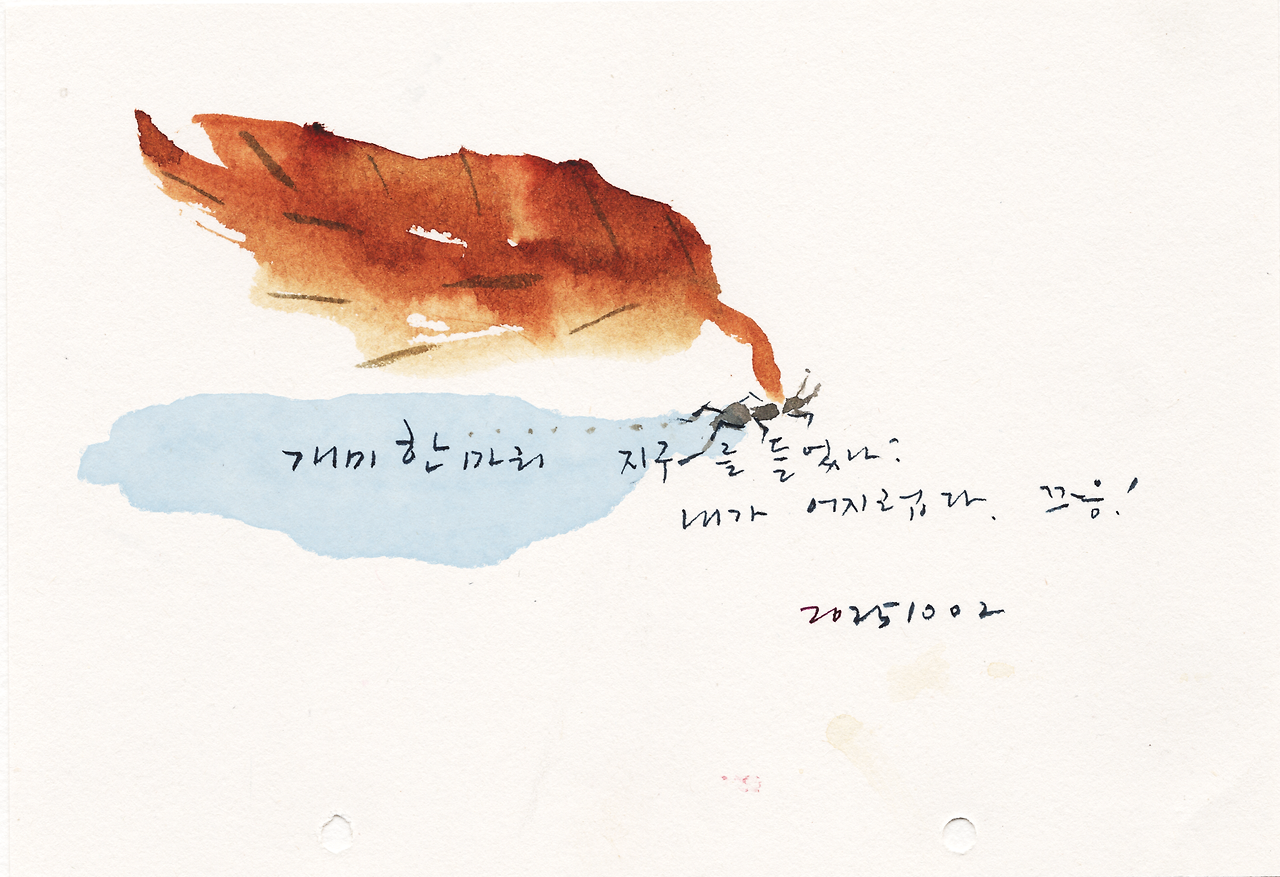 개미 한 마리 지구를 들었나?
내가 어지럽다. 끄응!
20251002